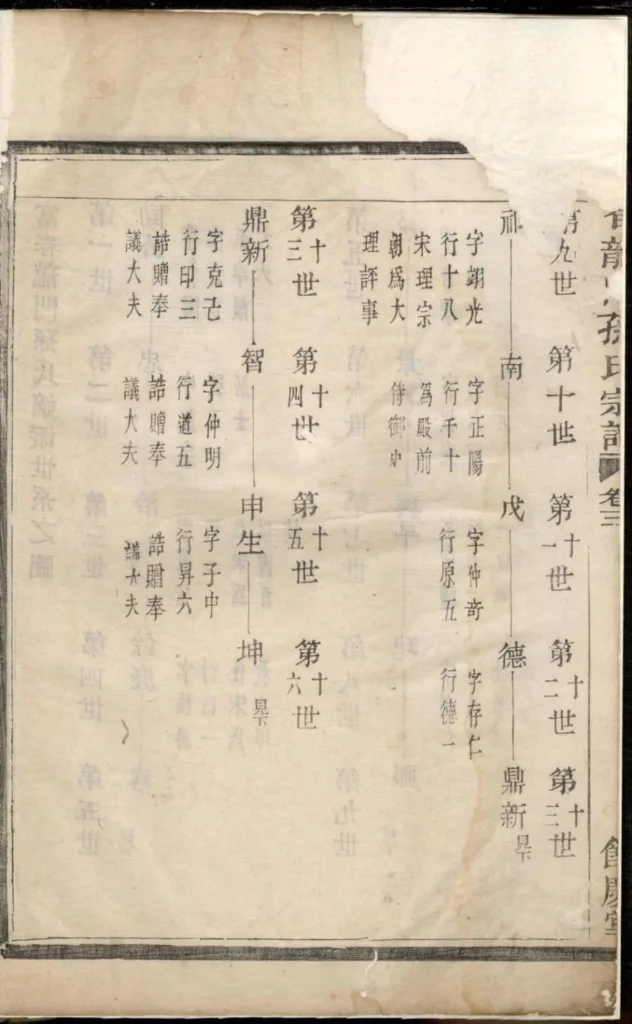 龍
孫氏宗譜
卷三
餘慶堂
第九世
第十世
第十一世
第十二世
第十三世
南
戊
德
鼎新 見下
字翊光
行十八
宋理宗
朝爲大
理評事
字正陽
行千十
爲殿前
侍御史
字仲奇
行原五
字存仁
行德一
第十三世
第十四世
第十五世
第十六世
鼎新
智
申生
坤 見下
字克己
行印三
誥贈奉
議大夫
字仲明
行道五
誥贈奉
議大夫
字子中
行昇六
誥贈奉
議大夫